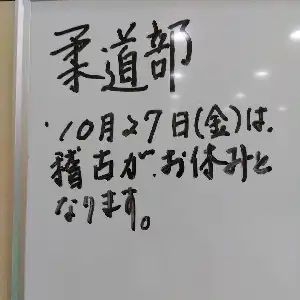 柔道部
・10月27日(金)は、
稽古が、お休みと
なります。